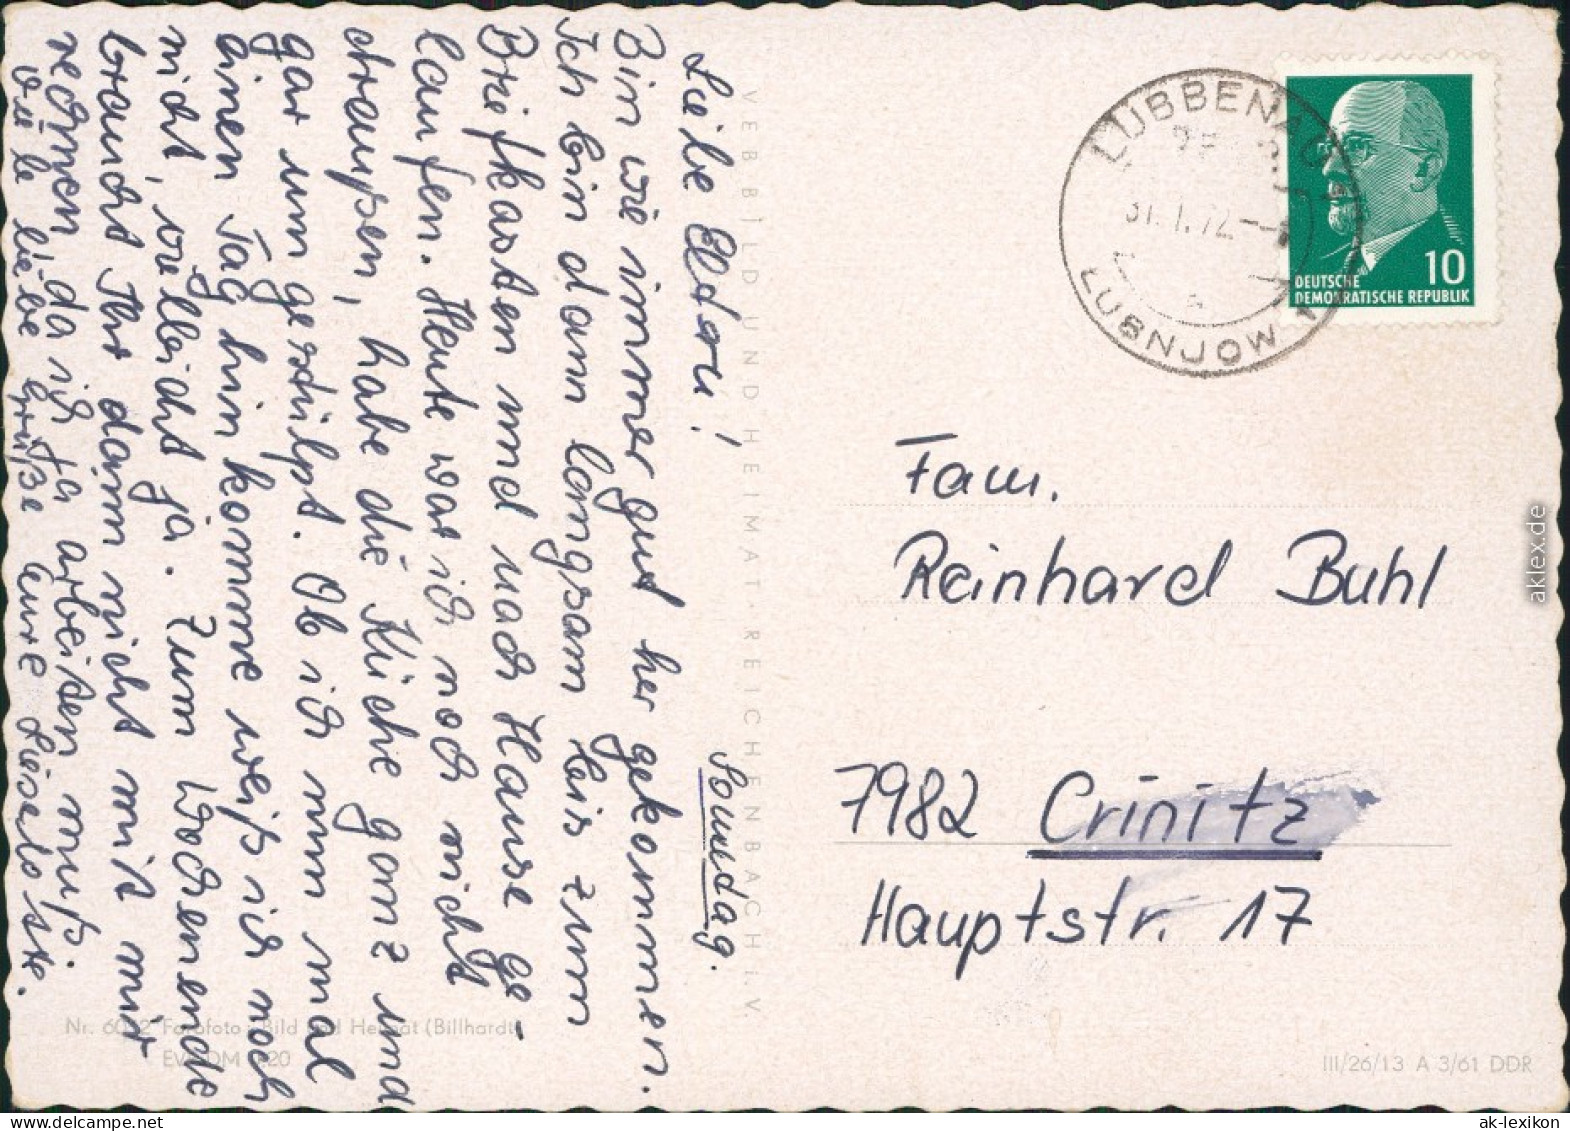 Sonntag.
Liebe Eltern!
Bin wie immer gut her gekommen.
Ich bin dann langsam bis zum
Briefkasten und nach Hause ge-
laufen. Heute war ich noch nicht
draußen, habe die Küche ganz und
gar um gestülpt. Ob ich nun mal
einen Tag hin komme weiß ich noch
nicht, vielleicht ja. Zum Wochenende
braucht Ihr dann nicht mit mir
rechnen, da ich ja arbeiten muß.
Viele liebe Grüße Eure Liselotte.
VEB BILD UND HEIMAT REICHENBACH I. V.
LÜBBENAU 1
31.1.72
a
LUBNJOW 1
10
DEUTSCHE
DEMOKRATISCHE REPUBLIK
Fam.
Reinhard Buhl
7982 Crinitz
Hauptstr. 17
Bild und Heimat (Billhardt)
III/26/13 A 3/61 DDR
aklex.de
ak-lexikon